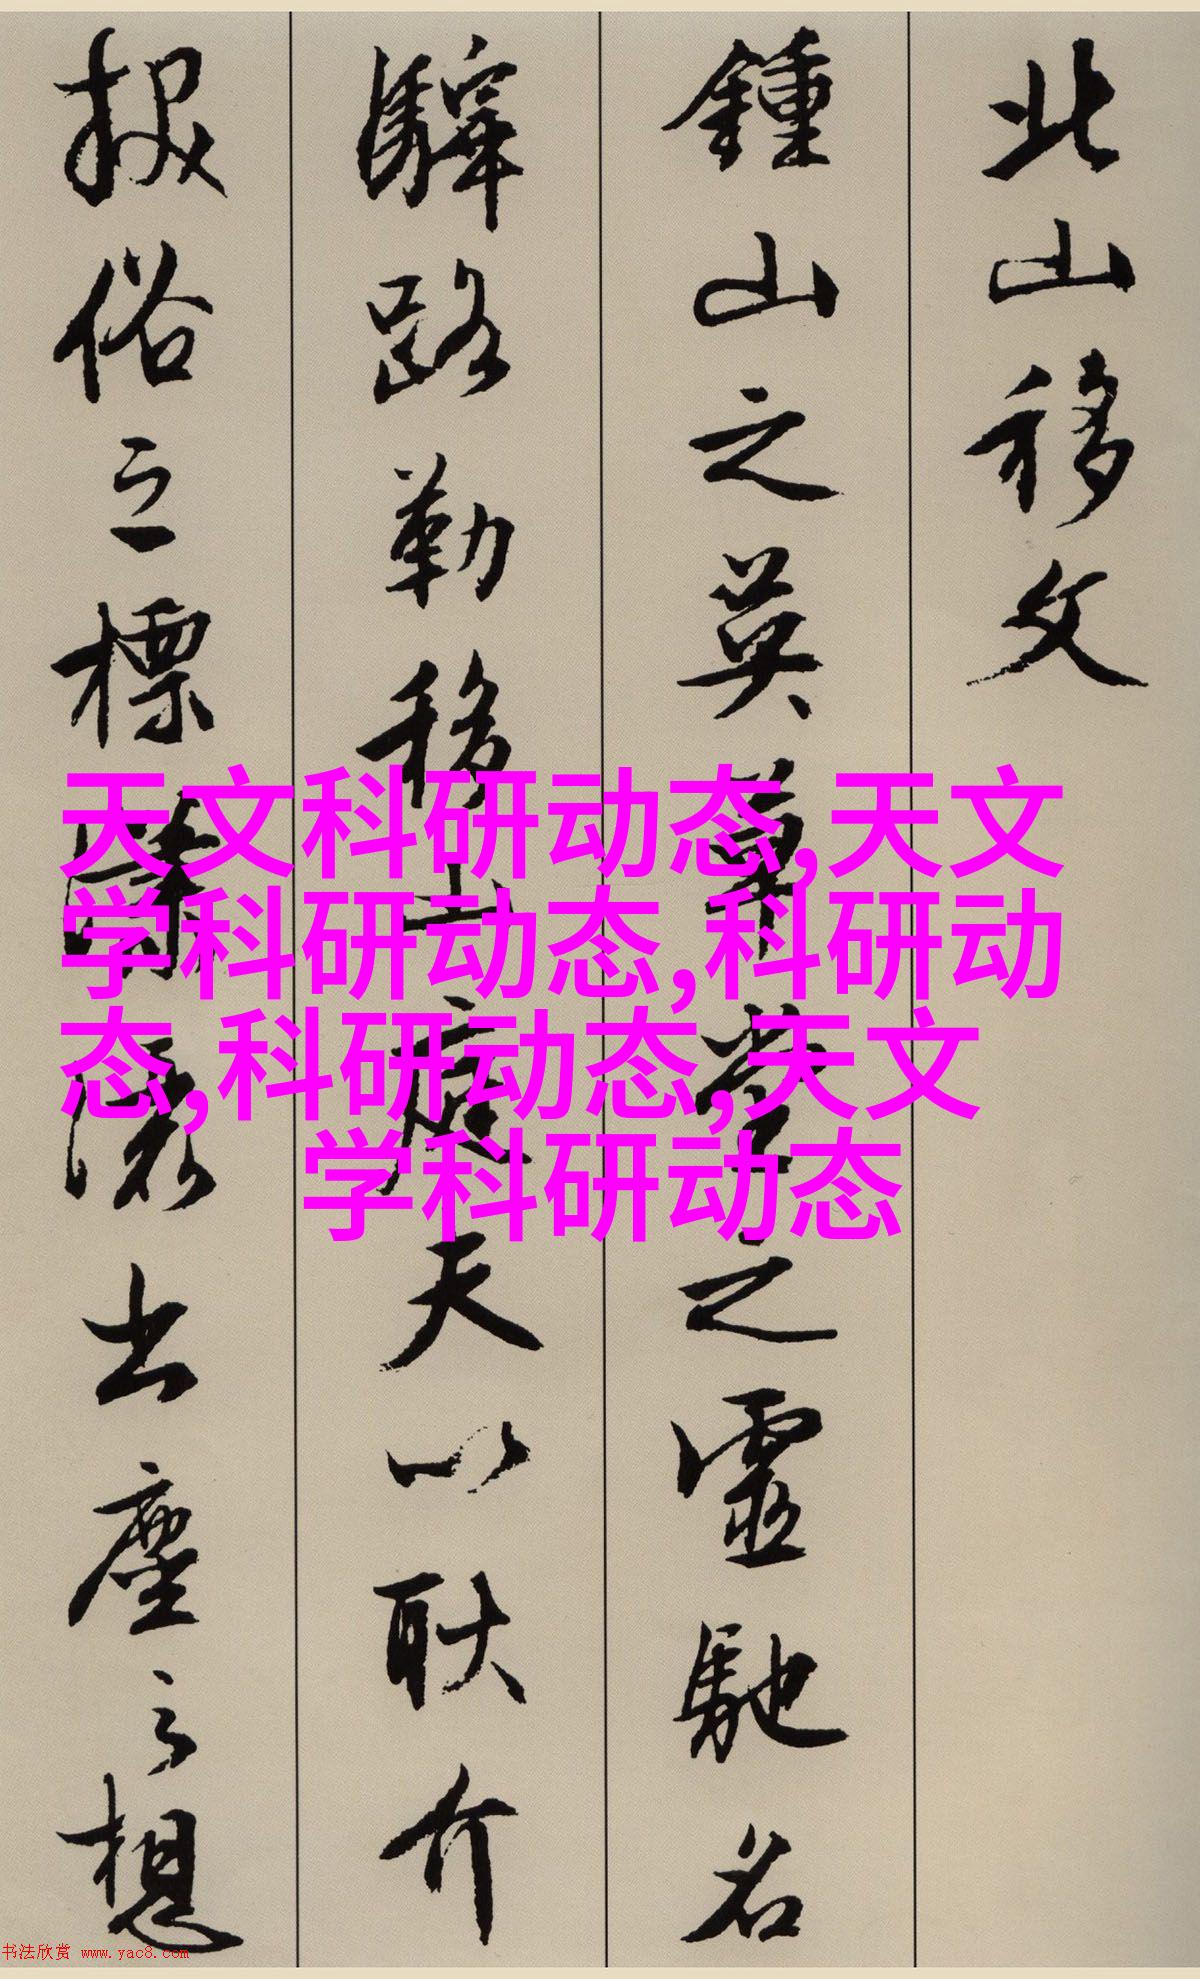 北山移文
鍾山之英草堂之靈馳名
驛路勒移山庭夫以耿介
拔俗之標瀟灑出塵之想
天文科研动态,天文
学科研动态,科研动
态,科研动态,天文
学科研动态
书法欣赏 www.yac8.com